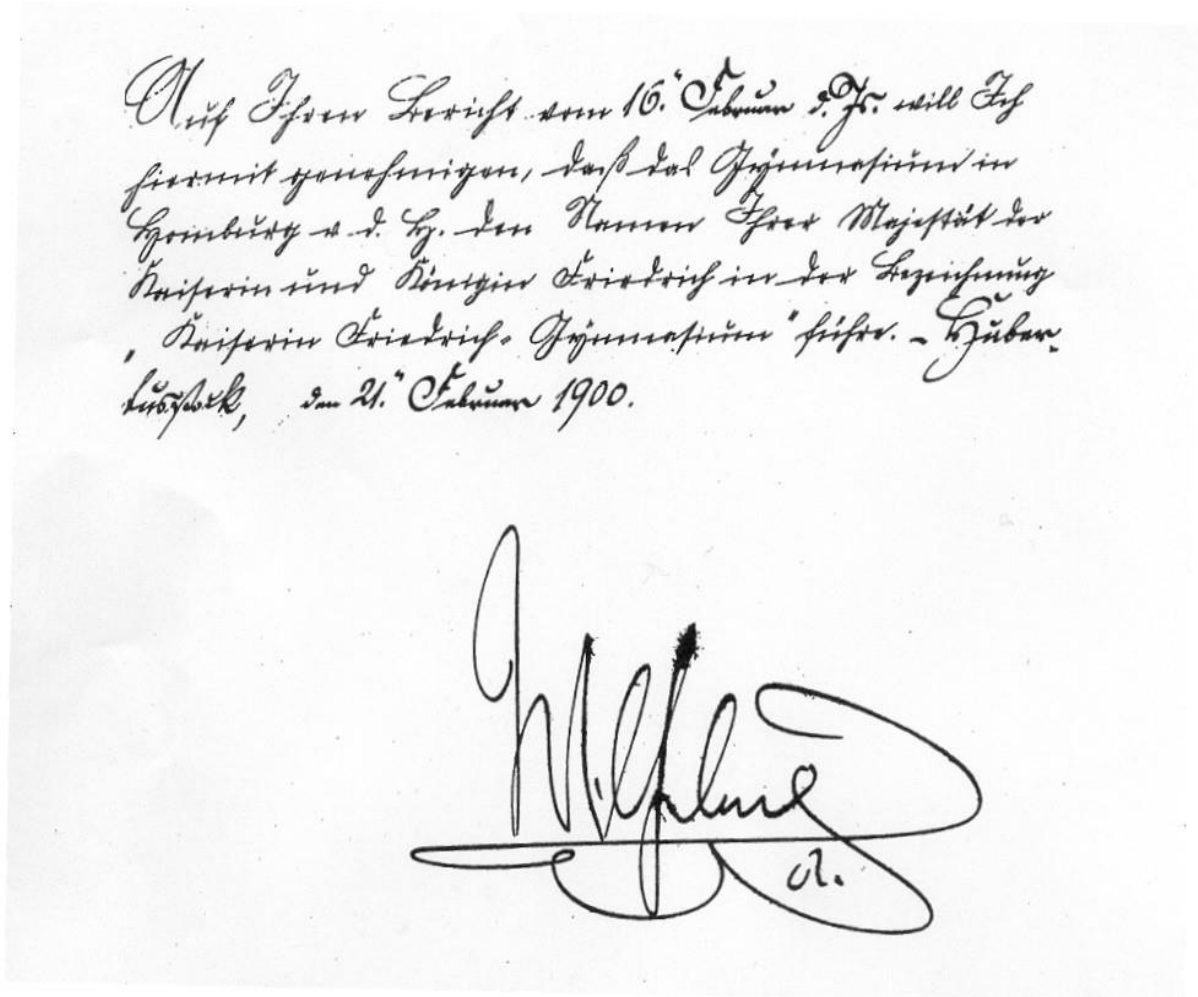 Auf Ihren Bericht vom 16. Februar d. Js. will Ich
hiermit genehmigen, daß das Gymnasium in
Homburg v. d. H. den Namen Ihrer Majestät der
Kaiserin und Königin Friedrich in der Bezeichnung
„Kaiserin Friedrich-Gymnasium" führe. – Huber-
tusstock, den 21. Februar 1900.
Wilhelm
R.